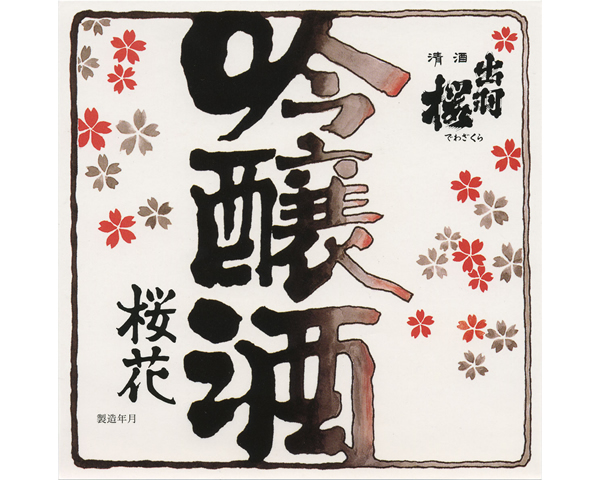 清酒
出羽桜
でわざくら
吟醸酒
桜花
製造年月